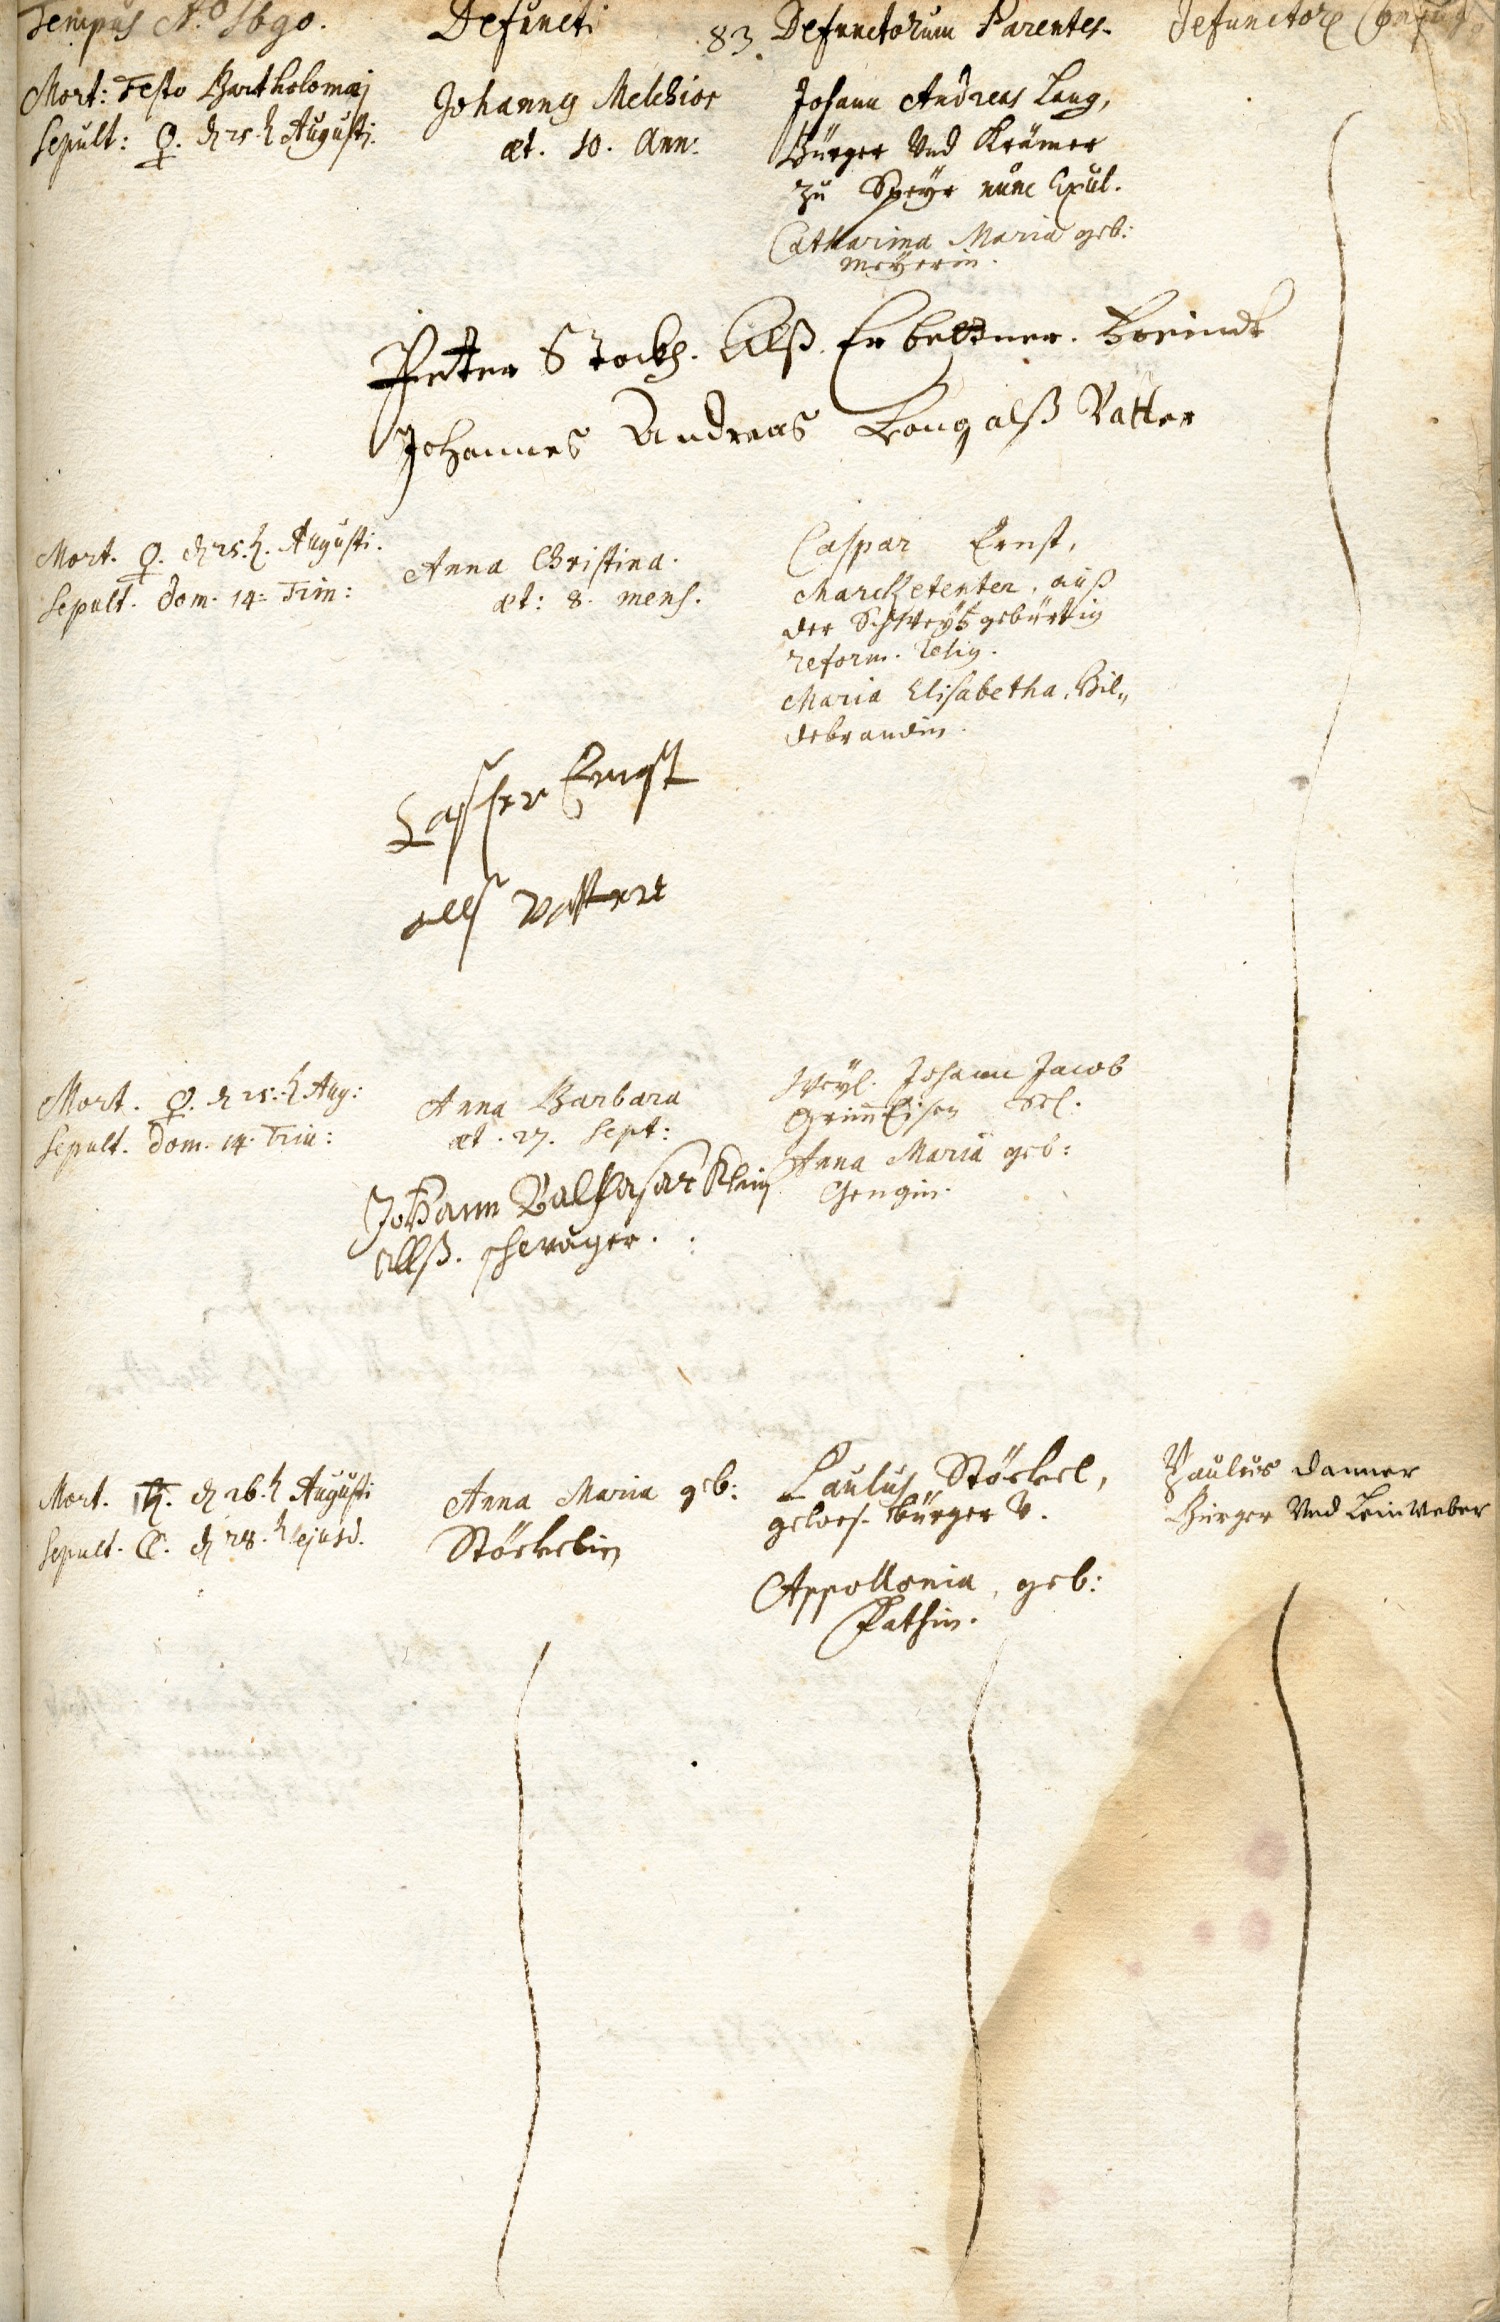 Tempus A.o 1690. Defuncti 83. Defunctorum Parentes. Defunctor Conjug.
Mort: Festo Bartholomæj
Sepult: ♀. d. 25. Augusti.
Johannes Melchior
æt. 10. Ann.
Johann Andreas Lang,
Bürger Und Krämer
zu Speyr nunc Exul.
Catharina Maria geb:
Meÿerin.
Petter Stockh. Alß Erbettner. freindt
Johannes Andreas Lang alß Vatter
Mort. ♀. d. 25. Augusti.
Sepult. Dom. 14. Trin:
Anna Christina.
æt: 8. mens.
Caspar Ernst,
Marcketenter, auß
der Schweÿtz gebürtig
reform. relig.
Maria Elisabetha, Hil„
debrandin.
Casper Ernst
alls Vatter
Mort. ♀. d. 25. Aug:
Sepult. Dom. 14. Trin:
Anna Barbara
æt. 27. Sept:
Weÿl. Johann Jacob
Grimeisen Sel.
Anna Maria geb:
Gengin.
Johann Balthasar Klein
Allß. schwager.
Mort. ♄. d. 26. Augusti
Sepult. ☾. d. 28. ejusd.
Anna Maria geb:
Stöckelin
Paulus Stöckel,
gewes. bürger V.
Appollonia, geb:
Paulus Danner
Bürger Und Leinweber